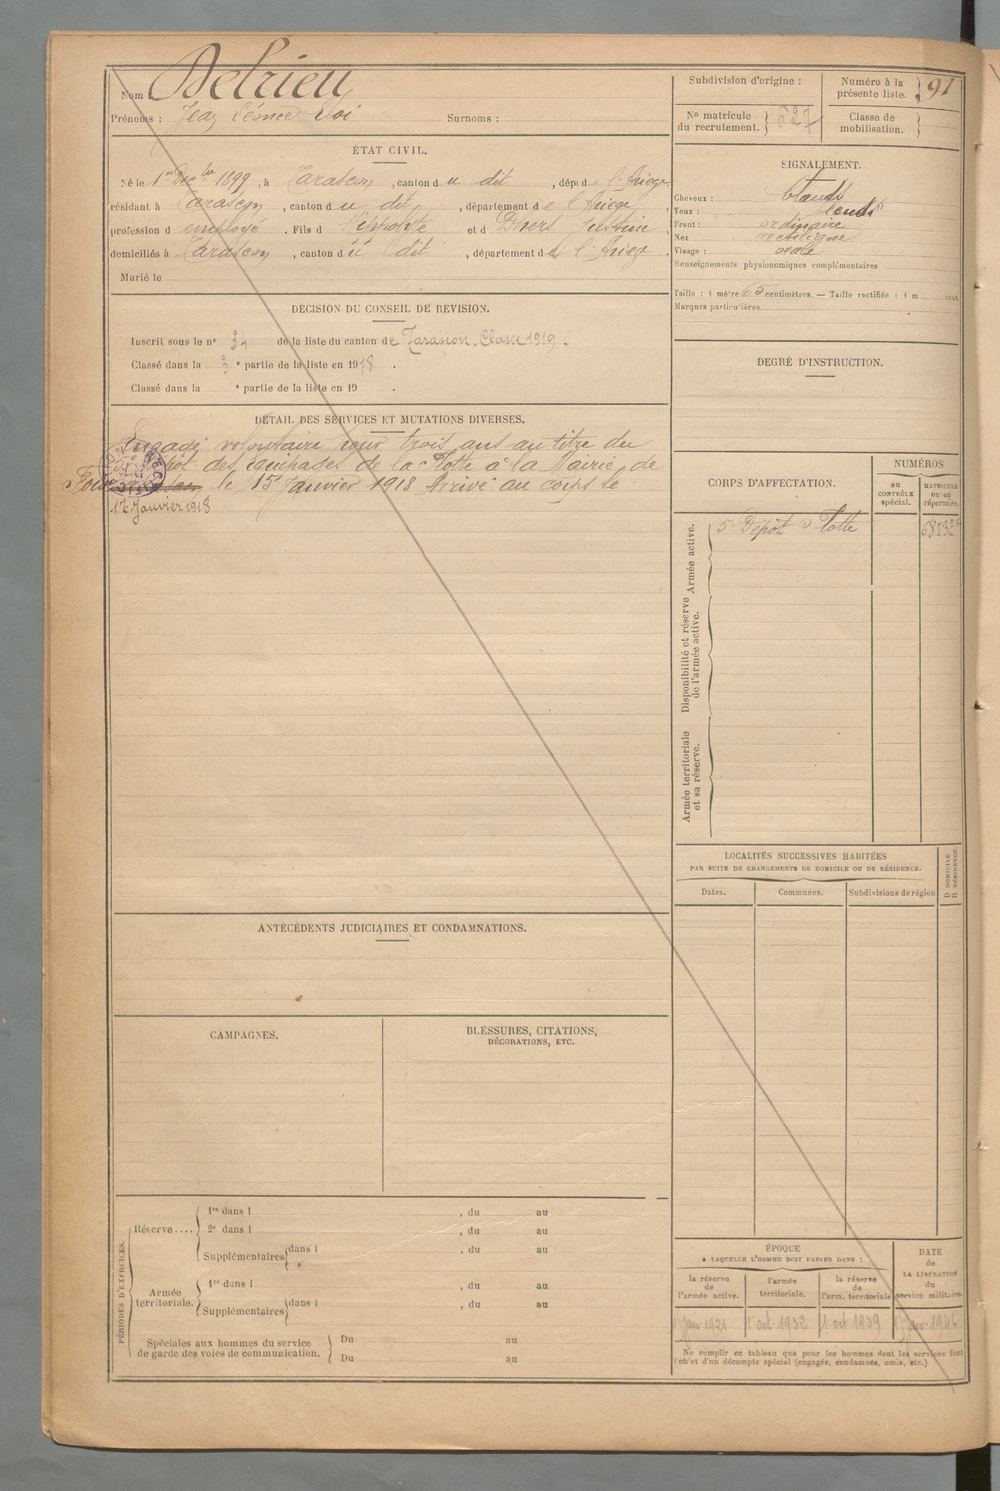 Nom : Delrieu
Prénoms : Jean Léonce Surnoms :
ÉTAT CIVIL.
Né le 1er 1899, à Tarascon, canton du dit, dépt de l'Ariège
résidant à Tarascon, canton du dit, département de l'Ariège,
profession d employé. Fils d Hippolyte et d Justine,
domiciliés à Tarascon, canton du dit, département de l'Ariège.
Marié le
DÉCISION DU CONSEIL DE REVISION.
Inscrit sous le no 34 de la liste du canton de Tarascon. Classe 1919.
Classé dans la 3e partie de la liste en 1918.
Classé dans la e partie de la liste en 19 .
DÉTAIL DES SERVICES ET MUTATIONS DIVERSES.
Engagé volontaire pour trois ans au titre du
dépôt des équipages de la Flotte à la Mairie de
le 15 Janvier 1918 Arrivé au corps le
17 Janvier 1918
ANTÉCÉDENTS JUDICIAIRES ET CONDAMNATIONS.
CAMPAGNES.
BLESSURES, CITATIONS,
DÉCORATIONS, ETC.
PÉRIODES D'EXERCICES.
Réserve....
1re dans l , du au
2e dans l , du au
Supplémentaires dans l , du au
Armée territoriale.
1re dans l , du au
Supplémentaires dans l , du au
Spéciales aux hommes du service
de garde des voies de communication.
Du au
Du au
Subdivision d'origine :
Numéro à la
présente liste. 91
No matricule
du recrutement. 627
Classe de
mobilisation.
SIGNALEMENT.
Cheveux :
Yeux : bleus
Front : ordinaire
Nez rectiligne
Visage : ovale
Renseignements physionomiques complémentaires
Taille : 1 mètre 65 centimètres. — Taille rectifiée : 1 m cent.
Marques particulières
DEGRÉ D'INSTRUCTION.
CORPS D'AFFECTATION.
NUMÉROS
AU
CONTRÔLE
spécial.
MATRICULE
OU AU
répertoire.
Armée active.
5e Dépôt Flotte
Disponibilité et réserve
de l'armée active.
Armée territoriale
et sa réserve.
LOCALITÉS SUCCESSIVES HABITÉES
PAR SUITE DE CHANGEMENTS DE DOMICILE OU DE RÉSIDENCE.
D DOMICILE
R RÉSIDENCE.
Dates. Communes. Subdivisions de région
ÉPOQUE
A LAQUELLE L'HOMME DOIT PASSER DANS :
la réserve
de
l'armée active.
l'armée
territoriale.
la réserve
de
l'arm. territoriale
DATE
de
LA LIBÉRATION
du
service militaire.
1921 1 oct 1932 1 oct 1939 1946
Ne remplir ce tableau que pour les hommes dont les services font
l'objet d'un décompte spécial (engagés, condamnés, omis, etc.)